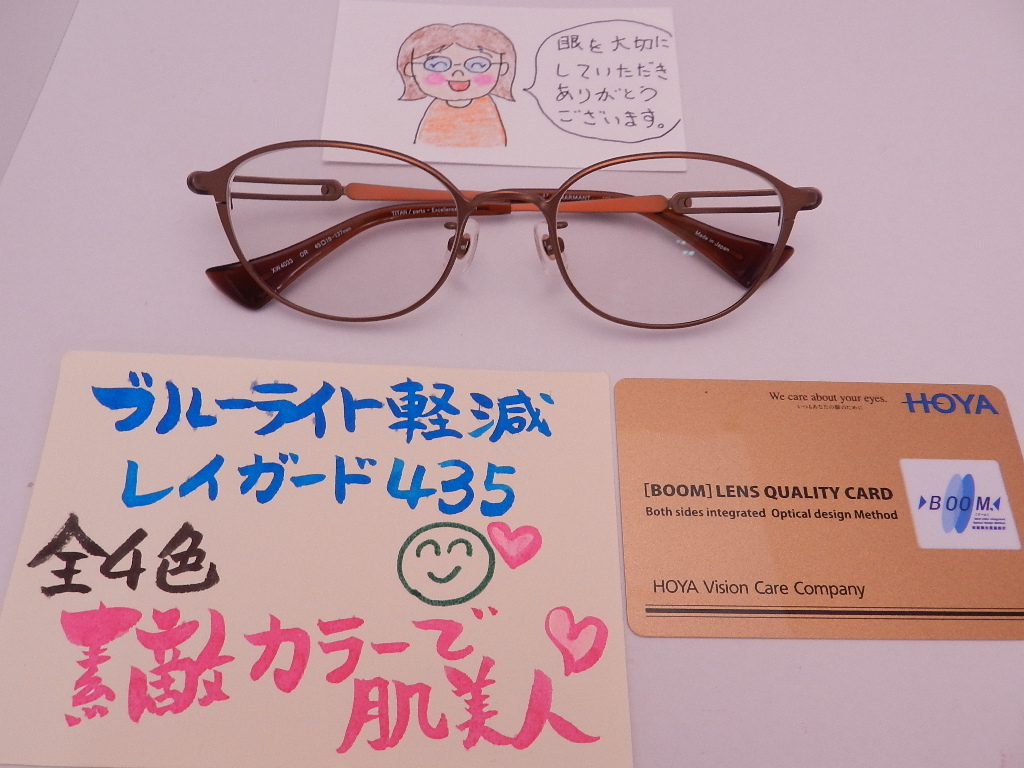 眼を大切に
していただき
ありがとう
ございます。
CHARMANT
TITAN / parts - Excellence
XW4033 OR 49□19-137mm
Made in Japan
ブルーライト軽減
レイガード435
全4色
素敵カラーで
肌美人
We care about your eyes.
いつもあなたの眼のために
HOYA
[BOOM] LENS QUALITY CARD
Both sides integrated Optical design Method
BOOM
HOYA Vision Care Company